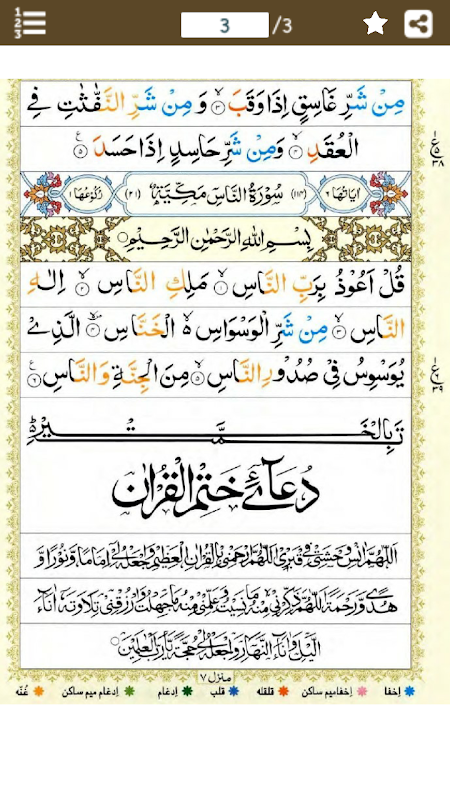 3 /3
مِنْ شَرِّ غَاسِقٍ اِذَا وَقَبَ ۙ۳ وَ مِنْ شَرِّ النَّفّٰثٰتِ فِی
الْعُقَدِ ۙ۴ وَ مِنْ شَرِّ حَاسِدٍ اِذَا حَسَدَ ۵
اٰیاتھا ۶ (۱۱۴) سُوْرَةُ النَّاسِ مَكِّيَّةٌ (۲۱) رُكُوْعُهَا ۱
بِسْمِ اللهِ الرَّحْمٰنِ الرَّحِيْمِ
قُلْ اَعُوْذُ بِرَبِّ النَّاسِ ۙ۱ مَلِكِ النَّاسِ ۙ۲ اِلٰهِ
النَّاسِ ۙ۳ مِنْ شَرِّ الْوَسْوَاسِ ۙ۬ الْخَنَّاسِ ۪ۙ۴ الَّذِیْ
یُوَسْوِسُ فِیْ صُدُوْرِ النَّاسِ ۙ۵ مِنَ الْجِنَّةِ وَ النَّاسِ ۶
تَمَّتْ بِالْخَيْرِ
دُعَآئے خَتْمِ الْقُرْاٰن
اَللّٰهُمَّ اٰنِسْ وَحْشَتِيْ فِيْ قَبْرِيْ اَللّٰهُمَّ ارْحَمْنِيْ بِالْقُرْاٰنِ الْعَظِيْمِ وَاجْعَلْهُ لِيْ اِمَامًا وَّنُوْرًا وَّ
هُدًى وَّرَحْمَةً اَللّٰهُمَّ ذَكِّرْنِيْ مِنْهُ مَا نَسِيْتُ وَعَلِّمْنِيْ مِنْهُ مَا جَهِلْتُ وَارْزُقْنِيْ تِلَاوَتَهٗ اٰنَآءَ
الَّيْلِ وَاٰنَآءَ النَّهَارِ وَاجْعَلْهُ لِيْ حُجَّةً يَّا رَبَّ الْعٰلَمِيْنَ
منزل ۷
اخفا اخفامیم ساکن قلقله قلب ادغام ادغام میم ساکن غُنّه